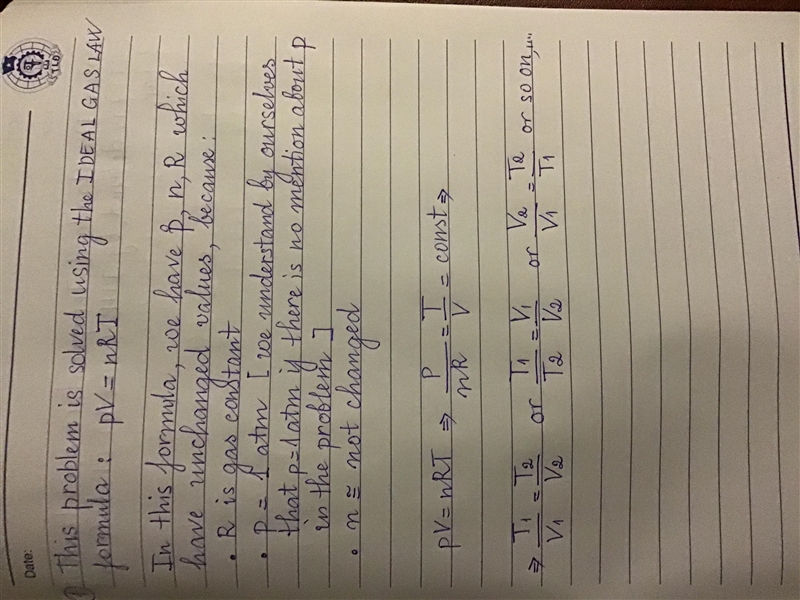 Date:
① This problem is solved using the IDEAL GAS LAW
formula : pV = nRT
In this formula, we have p, n, R which
have unchanged values, because :
• R is gas constant
• P = 1 atm [ we understand by ourselves
that p = 1 atm if there is no mention about p
in the problem ]
• n = not changed
pV = nRT ⇒ P/nR = T/V = const ⇒
⇒ T1/V1 = T2/V2 or T1/T2 = V1/V2 or V2/V1 = T2/T1 or so on,...